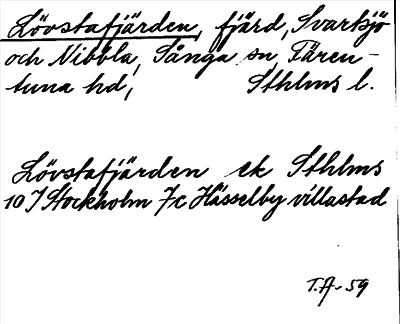 Lövstafjärden, fjärd, Svartsjö
och Nibbla, Sånga sn, Fären-
tuna hd, Sthlms l.
Lövstafjärden ek Sthlms
10 I Stockholm 7c Hässelby villastad
T.A-59